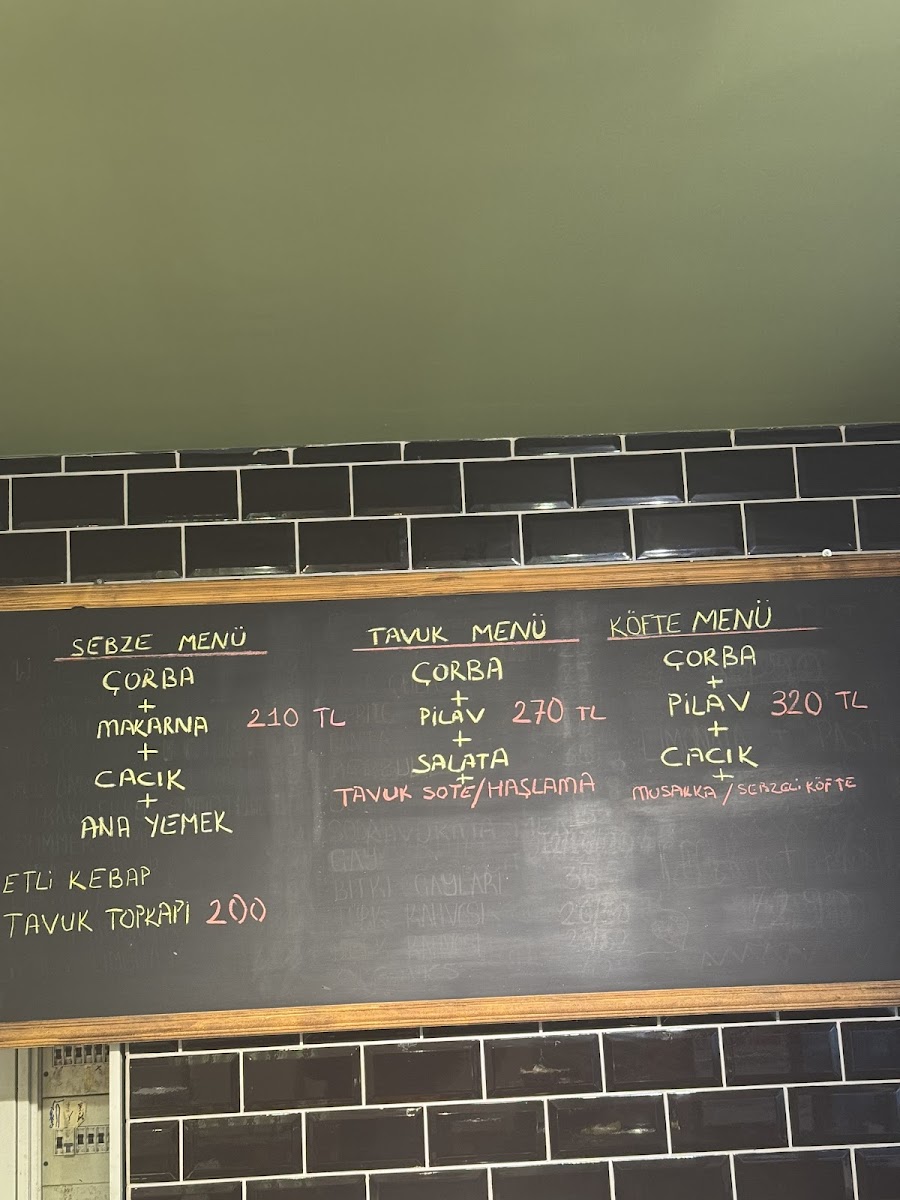 SEBZE MENÜ
ÇORBA
+
MAKARNA 210 TL
+
CACIK
+
ANA YEMEK
TAVUK MENÜ
ÇORBA
+
PİLAV 270 TL
+
SALATA
+
TAVUK SOTE/HAŞLAMA
KÖFTE MENÜ
ÇORBA
+
PİLAV 320 TL
+
CACIK
+
MUSAKKA/SEBZELİ KÖFTE
ETLİ KEBAP
TAVUK TOPKAPI 200
BİTKİ ÇAYLARI